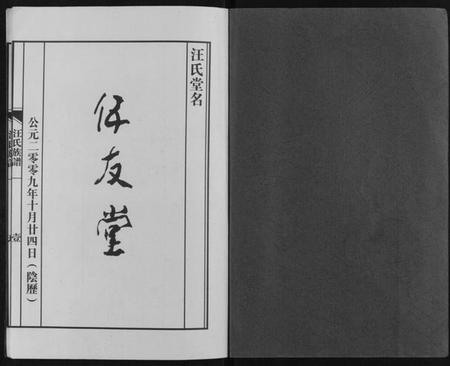 汪氏堂名
友堂
公元二零零九年十月廿四日(陰歷)
汪氏族譜
壹